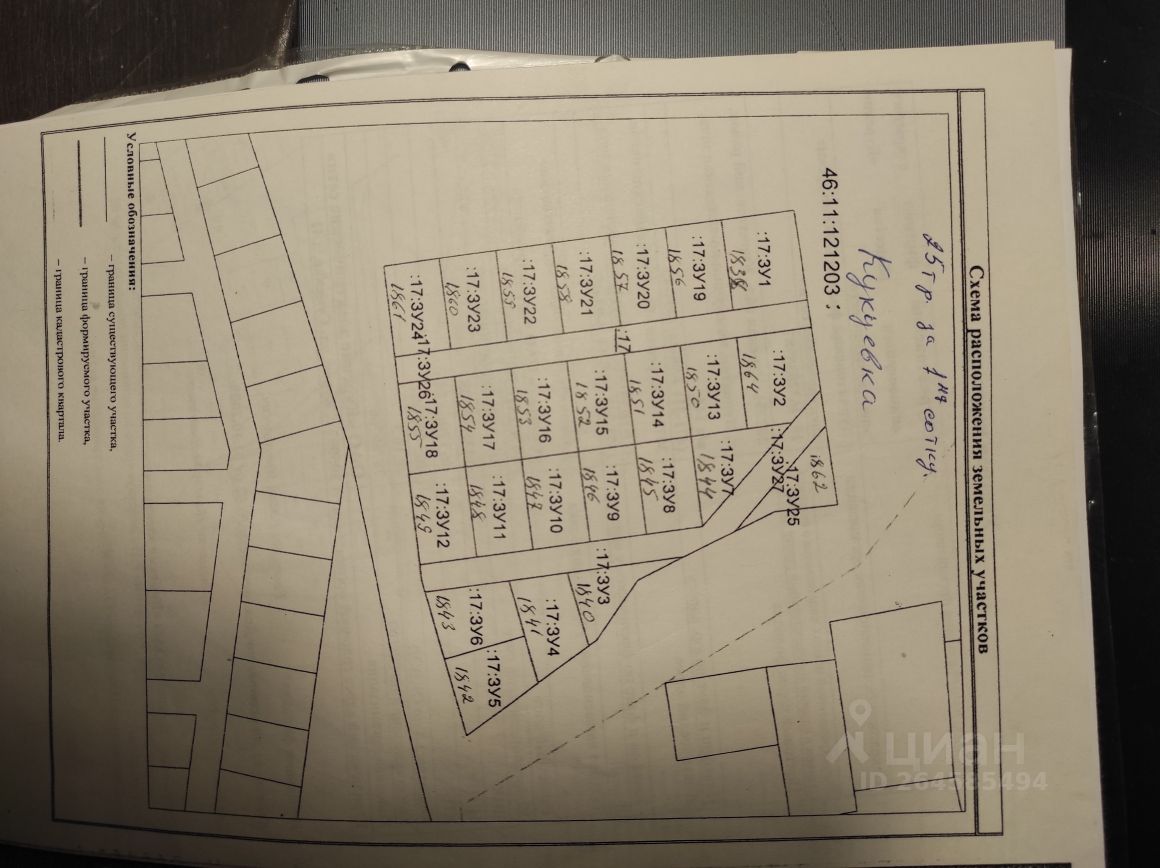 Схема расположения земельных участков
25 т р. за 1ну сотку.
Кукуевка
46:11:121203 :
:17:ЗУ1
:17:ЗУ19
1856
:17:ЗУ20
1857
:17:ЗУ21
1858
:17:ЗУ22
1859
:17:ЗУ23
1860
:17:ЗУ24
1861
:17
:17:ЗУ26
:17:ЗУ2
1864
:17:ЗУ13
1850
:17:ЗУ14
1851
:17:ЗУ15
1852
:17:ЗУ16
1853
:17:ЗУ17
1854
:17:ЗУ18
1855
1862
:17:ЗУ25
:17:ЗУ27
:17:ЗУ7
1844
:17:ЗУ8
1845
:17:ЗУ9
1846
:17:ЗУ10
1847
:17:ЗУ11
1848
:17:ЗУ12
1849
:17:ЗУ3
1840
:17:ЗУ4
1841
:17:ЗУ6
1843
:17:ЗУ5
1842
Условные обозначения:
– граница существующего участка,
– граница формируемого участка,
– граница кадастрового квартала.
циан
ID 264585494